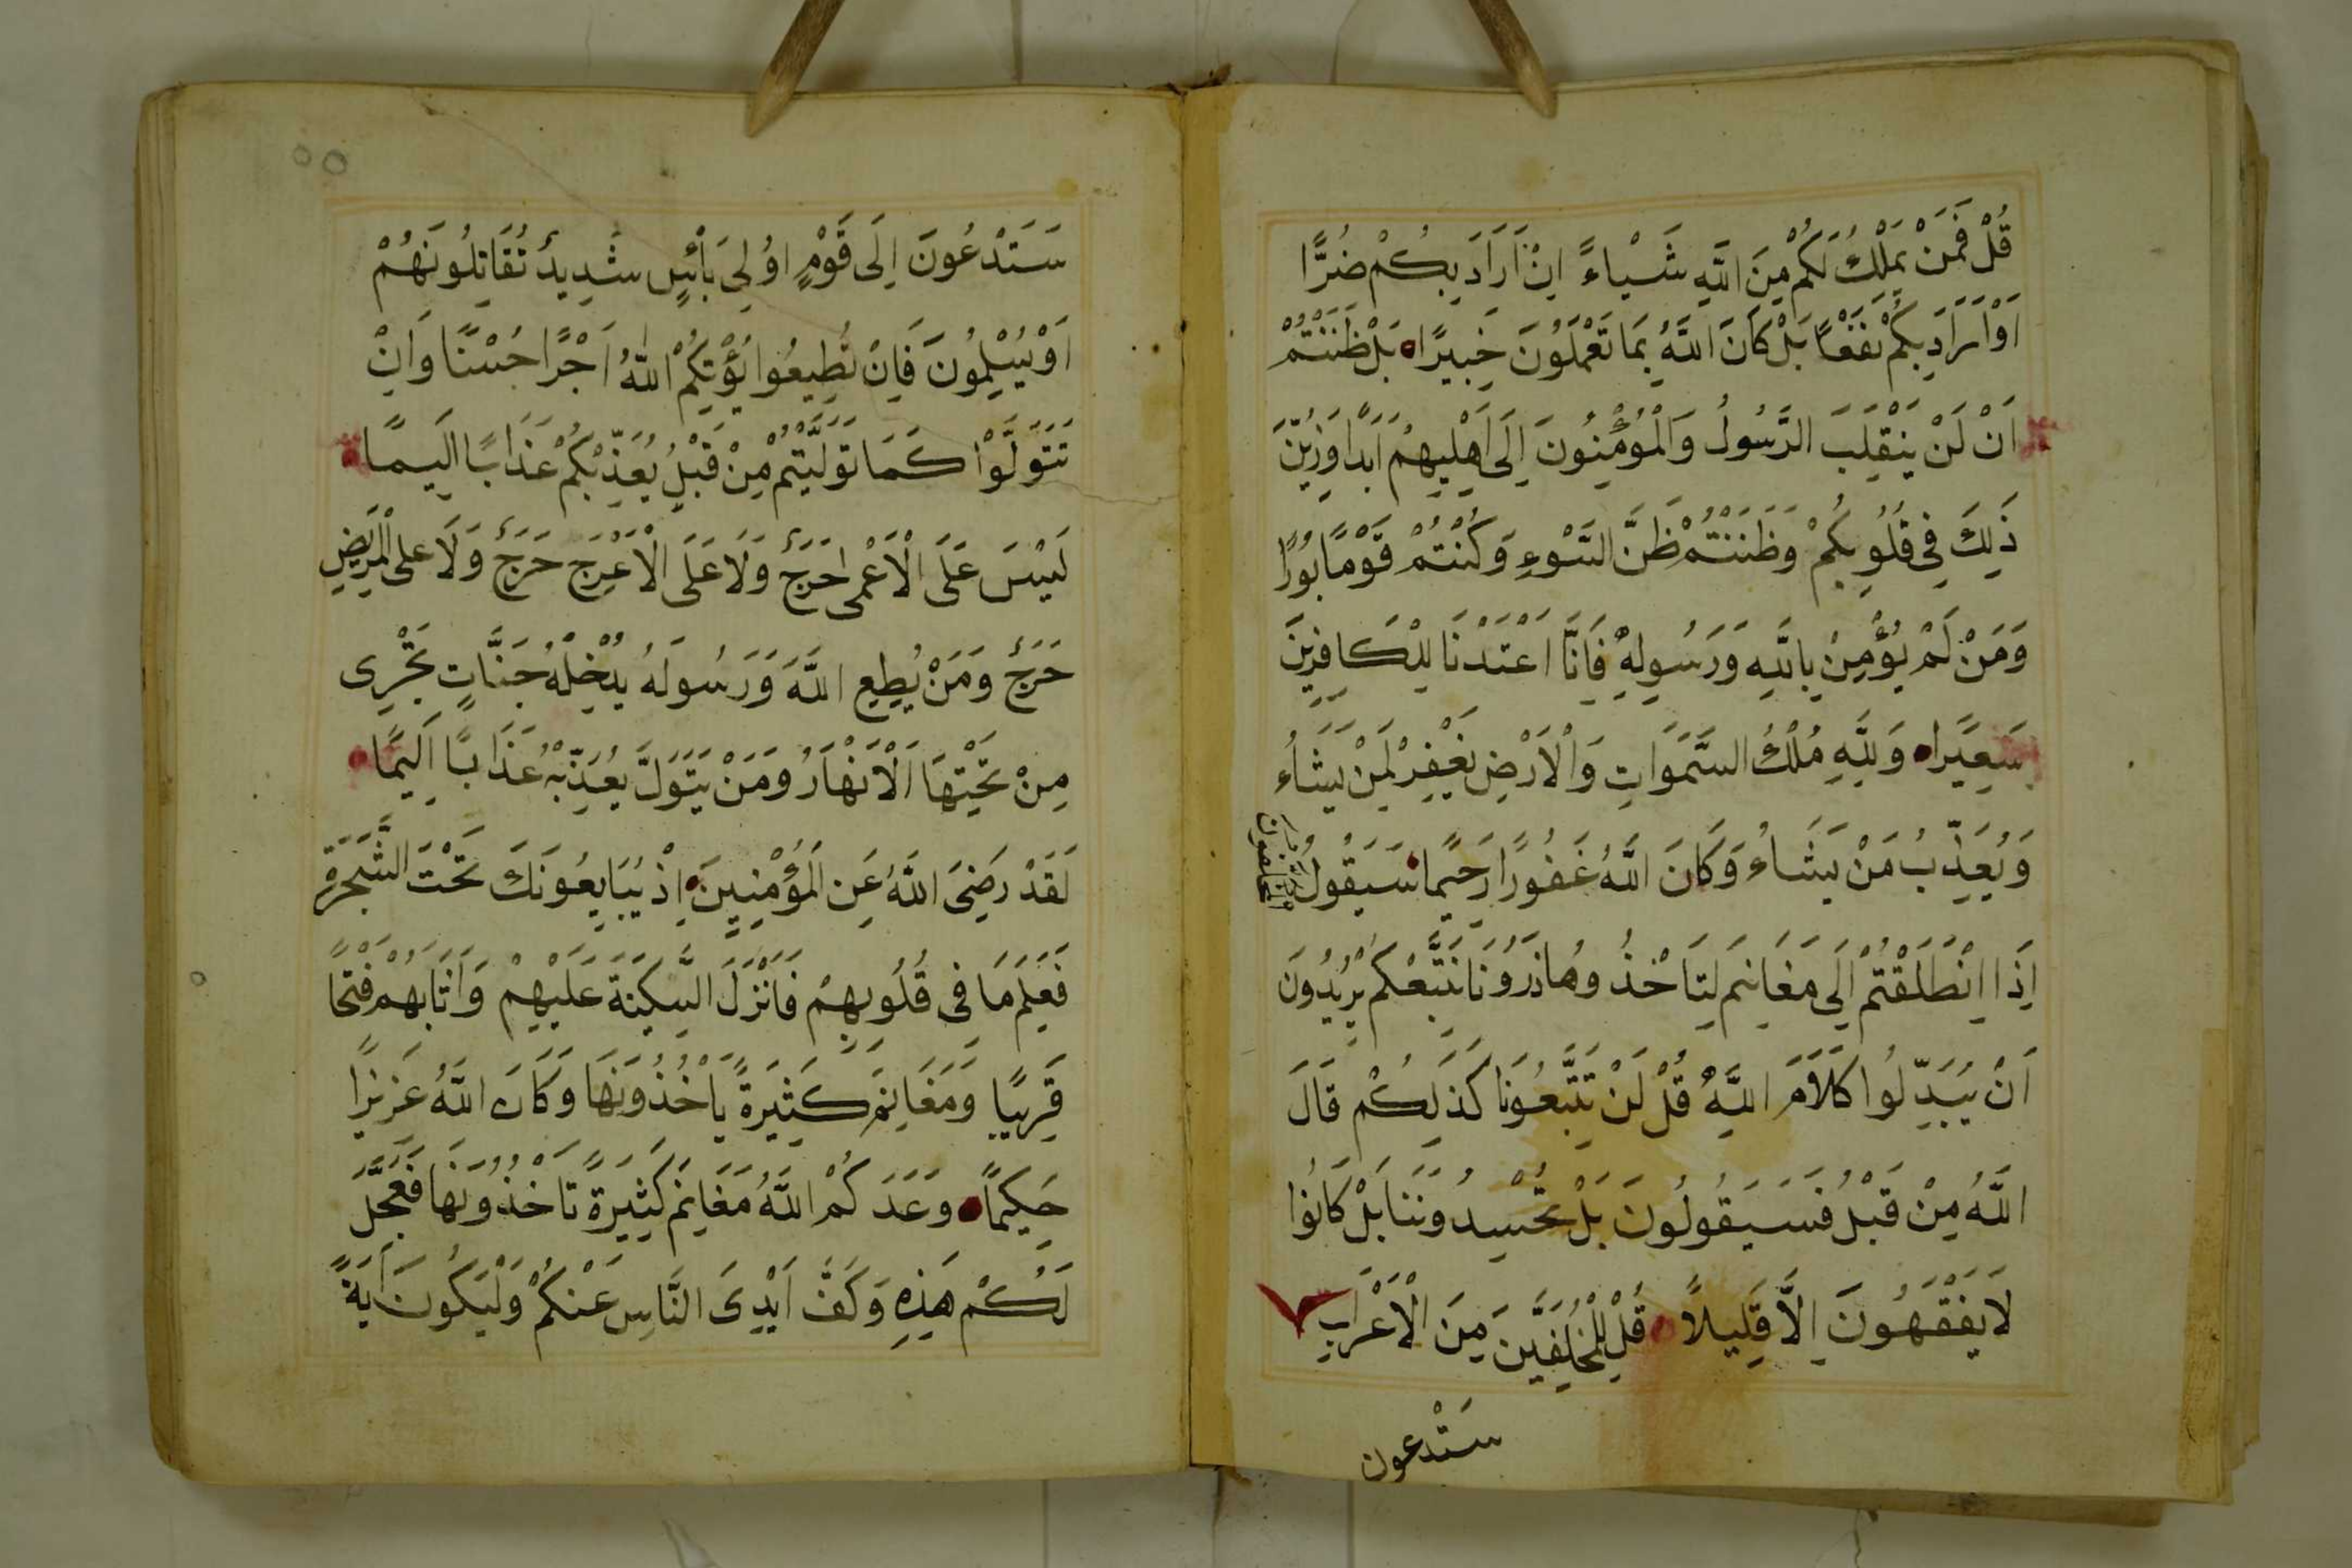 قُلْ فَمَنْ يَمْلِكُ لَكُمْ مِنَ اللَّهِ شَيْاءً اِنْ اَرَادَ بِكُمْ ضُرًّا
اَوْ اَرَادَ بِكُمْ نَفْعًا بَلْ كَانَ اللَّهُ بِمَا تَعْمَلُونَ خَبِيرًا بَلْ ظَنَنْتُمْ
اَنْ لَنْ يَنْقَلِبَ الرَّسُولُ وَالْمُؤْمِنُونَ اِلَى اَهْلِيهِمْ اَبَدًا وَزُيِّنَ
ذَلِكَ فِى قُلُوبِكُمْ وَظَنَنْتُمْ ظَنَّ السَّوْءِ وَكُنْتُمْ قَوْمًا بُورًا
وَمَنْ لَمْ يُؤْمِنْ بِاللَّهِ وَرَسُولِهِ فَاِنَّا اَعْتَدْنَا لِلْكَافِرِينَ
سَعِيرًا وَلِلَّهِ مُلْكُ السَّمَوَاتِ وَالْاَرْضِ يَغْفِرُ لِمَنْ يَشَاءُ
وَيُعَذِّبُ مَنْ يَشَاءُ وَكَانَ اللَّهُ غَفُورًا رَحِيمًا سَيَقُولُ الْمُخَلَّفُونَ
اِذَا انْطَلَقْتُمْ اِلَى مَغَانِمَ لِتَاْخُذُوهَا ذَرُونَا نَتَّبِعْكُمْ يُرِيدُونَ
اَنْ يُبَدِّلُوا كَلَامَ اللَّهِ قُلْ لَنْ تَتَّبِعُونَا كَذَلِكُمْ قَالَ
اللَّهُ مِنْ قَبْلُ فَسَيَقُولُونَ بَلْ تَحْسِدُونَنَا بَلْ كَانُوا
لَا يَفْقَهُونَ اِلَّا قَلِيلًا قُلْ لِلْمُخَلَّفِينَ مِنَ الْاَعْرَابِ
سَتْدعون
٥٥
سَتَدْعُونَ اِلَى قَوْمٍ اُولِى بَأْسٍ شَدِيدٍ تُقَاتِلُونَهُمْ
اَوْ يُسْلِمُونَ فَاِنْ تُطِيعُوا يُؤْتِكُمْ اللَّهُ اَجْرًا حُسَنًا وَاِنْ
تَتَوَلَّوْا كَمَا تَوَلَّيْتُمْ مِنْ قَبْلُ يُعَذِّبْكُمْ عَذَابًا اَلِيمًا
لَيْسَ عَلَى الْاَعْمَى حَرَجٌ وَلَا عَلَى الْاَعْرَجِ حَرَجٌ وَلَا عَلَى الْمَرِيضِ
حَرَجٌ وَمَنْ يُطِعِ اللَّهَ وَرَسُولَهُ يُدْخِلْهُ جَنَّاتٍ تَجْرِى
مِنْ تَحْتِهَا الْاَنْهَارُ وَمَنْ يَتَوَلَّ يُعَذِّبْهُ عَذَابًا اَلِيمًا
لَقَدْ رَضِىَ اللَّهُ عَنِ الْمُؤْمِنِينَ اِذْ يُبَايِعُونَكَ تَحْتَ الشَّجَرَةِ
فَعَلِمَ مَا فِى قُلُوبِهِمْ فَاَنْزَلَ السَّكِينَةَ عَلَيْهِمْ وَاَثَابَهُمْ فَتْحًا
قَرِيبًا وَمَغَانِمَ كَثِيرَةً يَاْخُذُونَهَا وَكَانَ اللَّهُ عَزِيزًا
حَكِيمًا وَعَدَكُمُ اللَّهُ مَغَانِمَ كَثِيرَةً تَاْخُذُونَهَا فَعَجَّلَ
لَكُمْ هَذِهِ وَكَفَّ اَيْدِىَ النَّاسِ عَنْكُمْ وَلْيَكُونَ اَيَةً